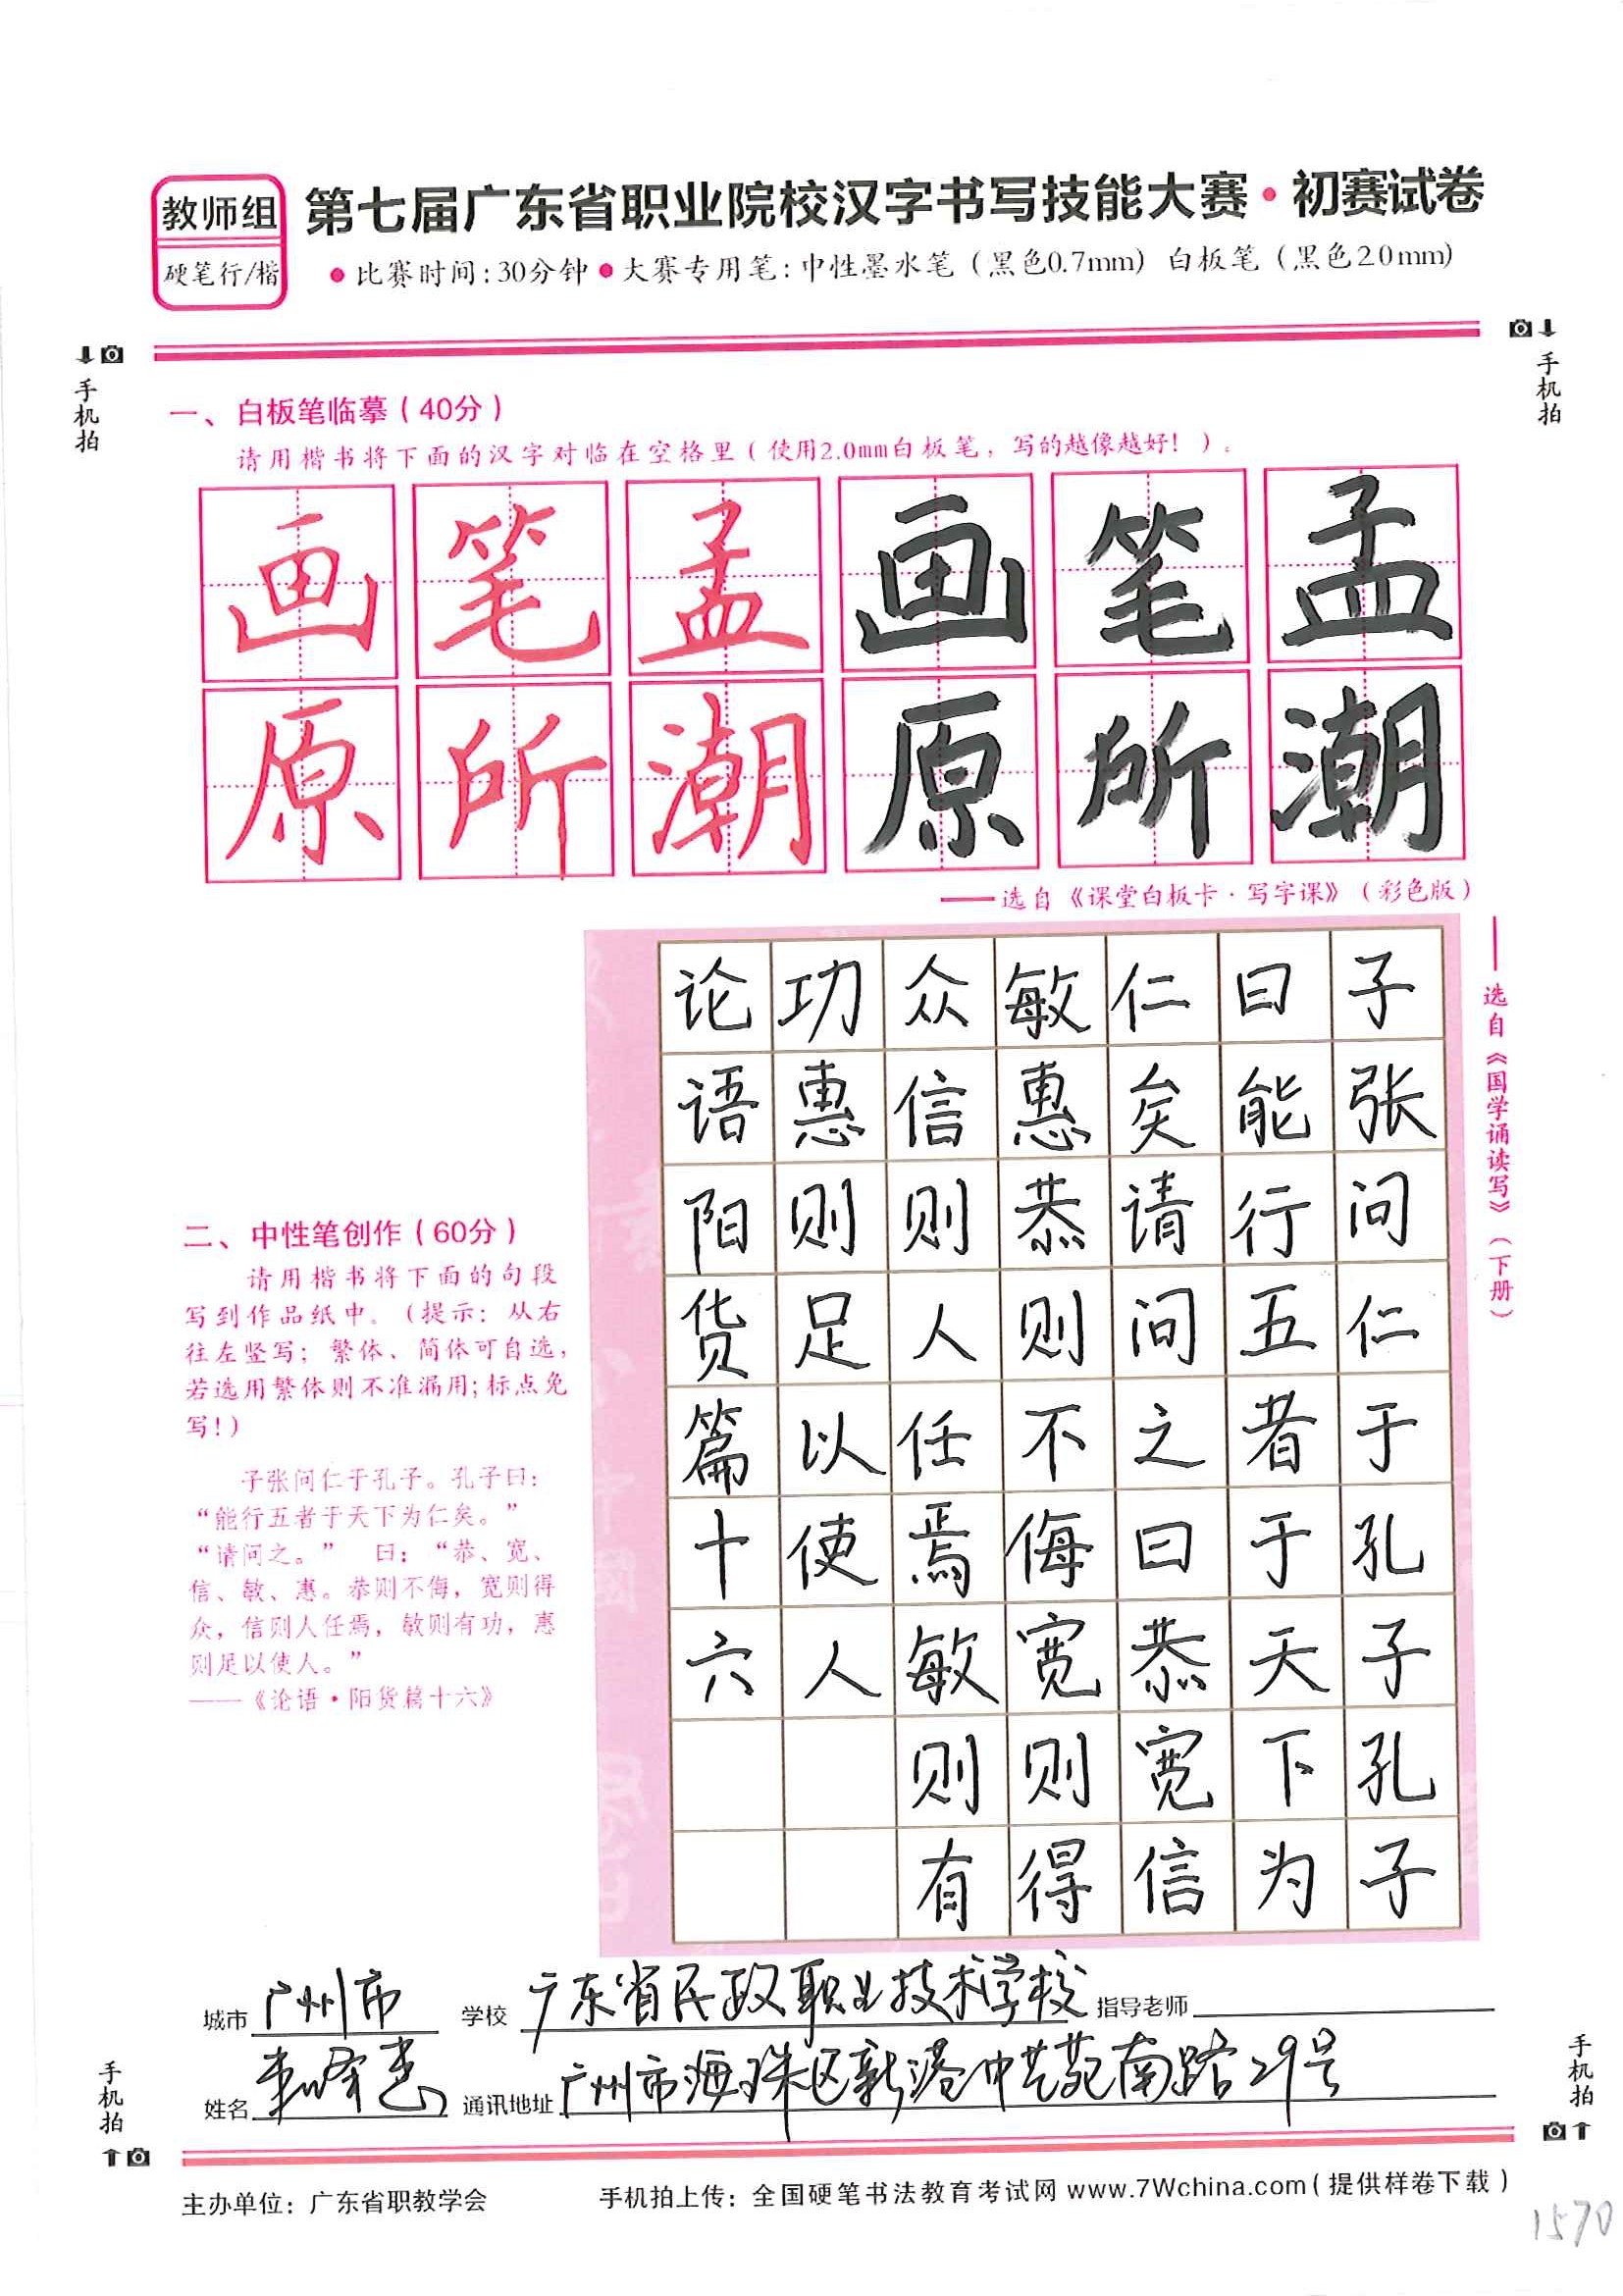 教师组
硬笔行/楷
第七届广东省职业院校汉字书写技能大赛·初赛试卷
●比赛时间:30分钟●大赛专用笔:中性墨水笔(黑色0.7mm) 白板笔(黑色2.0mm)
手机拍
手机拍
一、白板笔临摹(40分)
请用楷书将下面的汉字对临在空格里(使用2.0mm白板笔,写的越像越好!)。
画笔孟画笔孟
原所潮原所潮
——选自《课堂白板卡·写字课》(彩色版)
——选自《国学诵读写》(下册)
子张问仁于孔子孔子
曰能行五者于天下为
仁矣请问之曰恭宽信
敏惠恭则不侮宽则得
众信则人任焉敏则有
功惠则足以使人
论语阳货篇十六
二、中性笔创作(60分)
请用楷书将下面的句段
写到作品纸中。(提示:从右
往左竖写;繁体、简体可自选,
若选用繁体则不准漏用;标点免
写!)
子张问仁于孔子。孔子曰:
“能行五者于天下为仁矣。”
“请问之。” 曰:“恭、宽、
信、敏、惠。恭则不侮,宽则得
众,信则人任焉,敏则有功,惠
则足以使人。”
——《论语·阳货篇十六》
城市 广州市 学校 广东省民政职业技术学校 指导老师
姓名 通讯地址 广州市海珠区新港中艺苑南路29号
手机拍
手机拍
主办单位:广东省职教学会 手机拍上传:全国硬笔书法教育考试网 www.7Wchina.com(提供样卷下载)
1570